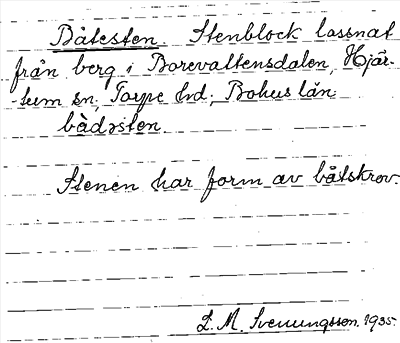 Båtesten. Stenblock lassnat
från berg i Borevattensdalen, Hjär-
-tum sn, Torpe hd, Bohus län.
bàdəsten.
Stenen har form av båtskrov.
L. M. Svenungsson. 1935.